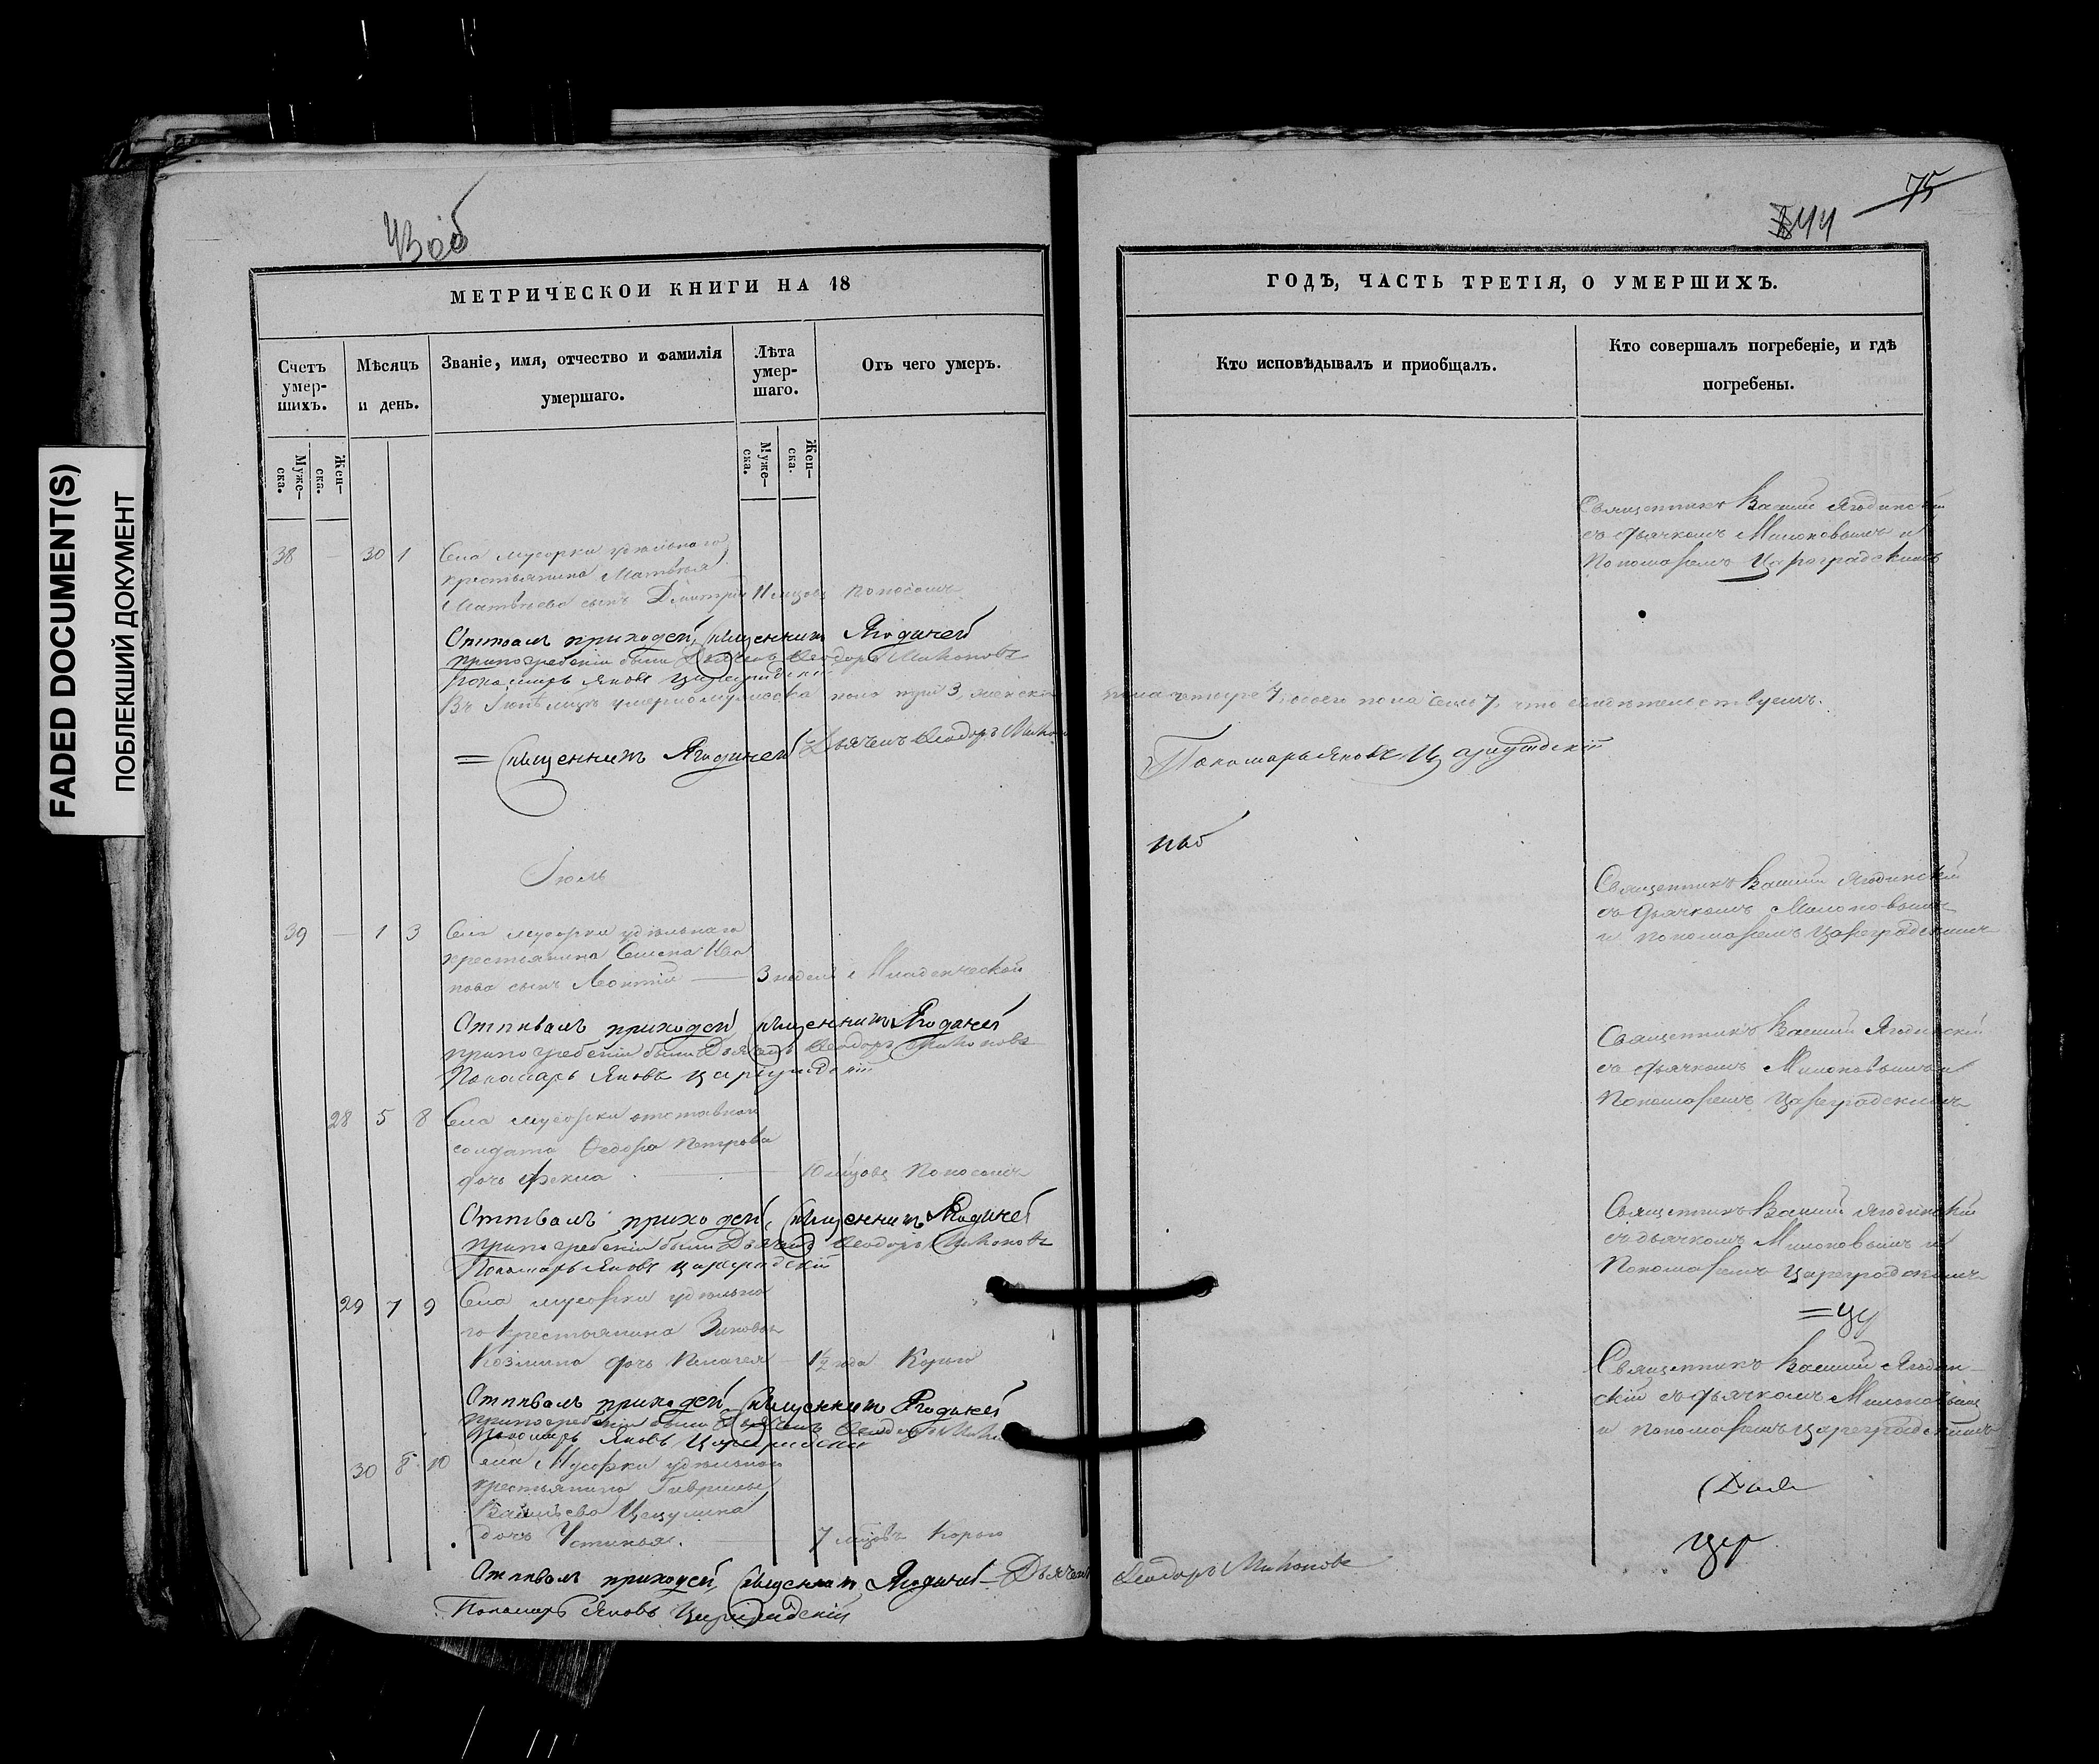 FADED DOCUMENT(S)
ПОБЛЕКШИЙ ДОКУМЕНТ
75
44
МЕТРИЧЕСКОИ КНИГИ НА 18
Счетъ умер-шихъ.
Мѣсяцъ и день.
Званіе, имя, отчество и фамилія умершаго.
Лѣта умер-шаго.
Отъ чего умеръ.
Муже-ска.
Жен-ска.
Муже-ска.
Жен-ска.
38 — 30 1 Села мусорки удѣльнаго
крестьянина Матвѣя
Матвѣева сынъ Дмитрій 11 мцовъ поносомъ
Отпѣвалъ приходск. священникъ Ягодинск
при погребеніи были Дьячекъ Ѳеодоръ Милоновъ
Пономарь Яковъ Цареградскій
Въ Іюнѣ мцѣ умерло мужеска пола три 3, женска
= Священникъ Ягодинск Дьячекъ Ѳеодоръ
Іюль
39 — 1 3 Села мусорки удѣльнаго
крестьянина Семена Ива
нова сынъ Леонтій — 3 недели Младенческой
Отпѣвалъ приходск. священникъ Ягодинск
при погребеніи были Дьячекъ Ѳеодоръ Милоновъ
Пономарь Яковъ Цареградскій
28 5 8 Села мусорки отставнаго
солдата Ѳедора Петрова
дочь Ѳекла — 10 мцовъ Поносомъ
Отпѣвалъ приходск. священникъ Ягодинск
при погребеніи были Дьячекъ Ѳеодоръ Милоновъ
Пономарь Яковъ Цареградскій
29 7 9 Села мусорки удѣльна
го крестьянина Зиновья
Козмина дочь Пелагея — 1½ года Корью
Отпѣвалъ приходск. священникъ Ягодинск
при погребеніи были Дьячекъ Ѳеодоръ
Пономарь Яковъ Цареградскій
30 8 10 Села Мусорки удѣльнаго
крестьянина Гаврилы
Васильева
дочь Устинья. — 7 мцовъ Корью
Отпѣвалъ приходск. священникъ Ягодинск Дьячекъ Ѳеодоръ Милоновъ
Пономарь Яковъ Цареградскій
ГОДЪ, ЧАСТЬ ТРЕТІЯ, О УМЕРШИХЪ.
Кто исповѣдывалъ и приобщалъ.
Кто совершалъ погребеніе, и гдѣ погребены.
Священникъ Василій Ягодинскій
съ дьячкомъ Милоновымъ и
Пономаремъ Цареградскимъ
пола четыре, обоего пола семь 7, что свидѣтельствуемъ.
Пономарь Яковъ Цареградскій
Священникъ Василій Ягодинскій
съ дьячкомъ Милоновымъ
и пономаремъ Цареградскимъ
Священникъ Василій Ягодинскій
съ дьячкомъ Милоновымъ и
Пономаремъ Цареградскимъ
Священникъ Василій Ягодинскій
съ дьячкомъ Милоновымъ и
Пономаремъ Цареградскимъ
Священникъ Василій Ягодин-
скій съ дьячкомъ Милоновымъ
и пономаремъ Цареградскимъ